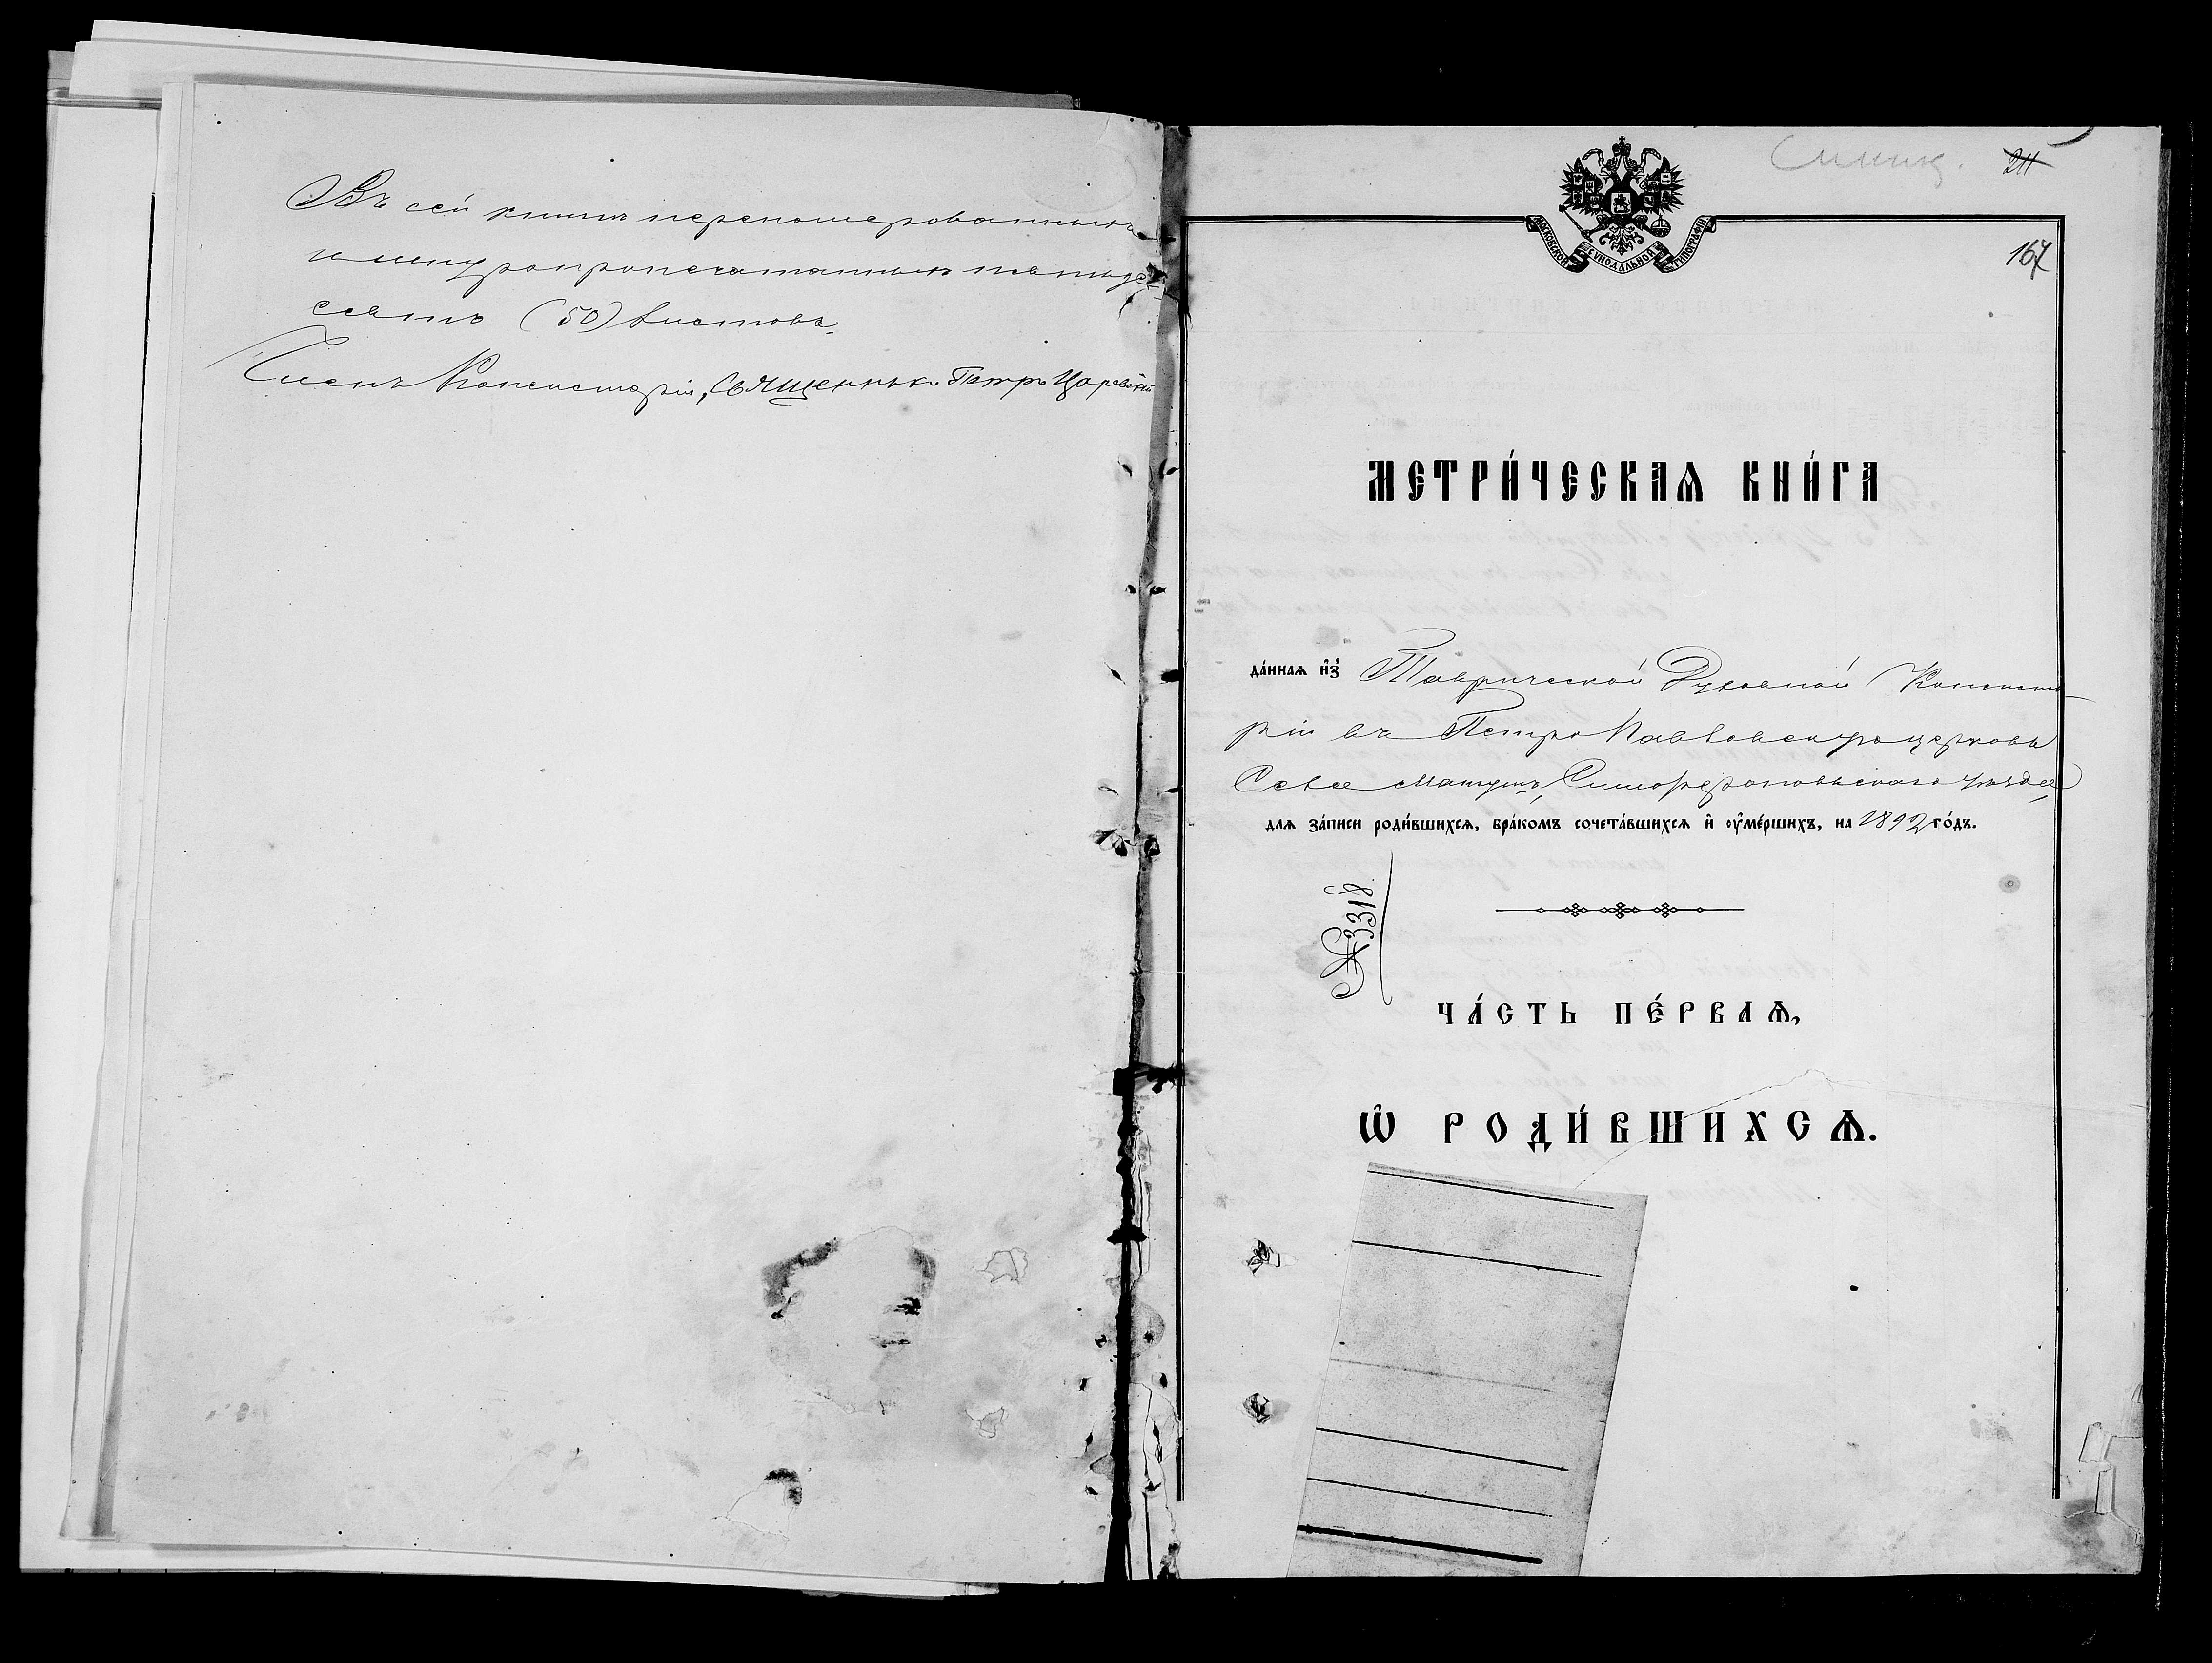 Въ сей книгѣ перенумерованныхъ
и шнуропропечатанныхъ пятьде-
сятъ (50) листовъ.
Членъ Консисторіи, Священникъ Петръ Царевскій
Симф.
211
167
МОСКОВСКОЙ СѴНОДАЛЬНОЙ ТИПОГРАФІИ
МЕТРИ́ЧЕСКАѦ КНИ́ГА
да́ннаѧ и҆з̾ Таврической Духовной Консисто-
ріи въ Петро Павловскую церковь
Села Мангушъ, Симферопольскаго уѣзда,
длѧ за́писи роди́вшихсѧ, бра́комъ сочета́вшихсѧ и҆ ᲂу҆ме́ршихъ, на 1892 го́дъ.
№ 3318
ЧА́СТЬ ПЕ́РВАѦ,
Ѽ РОДИ́ВШИХСѦ.